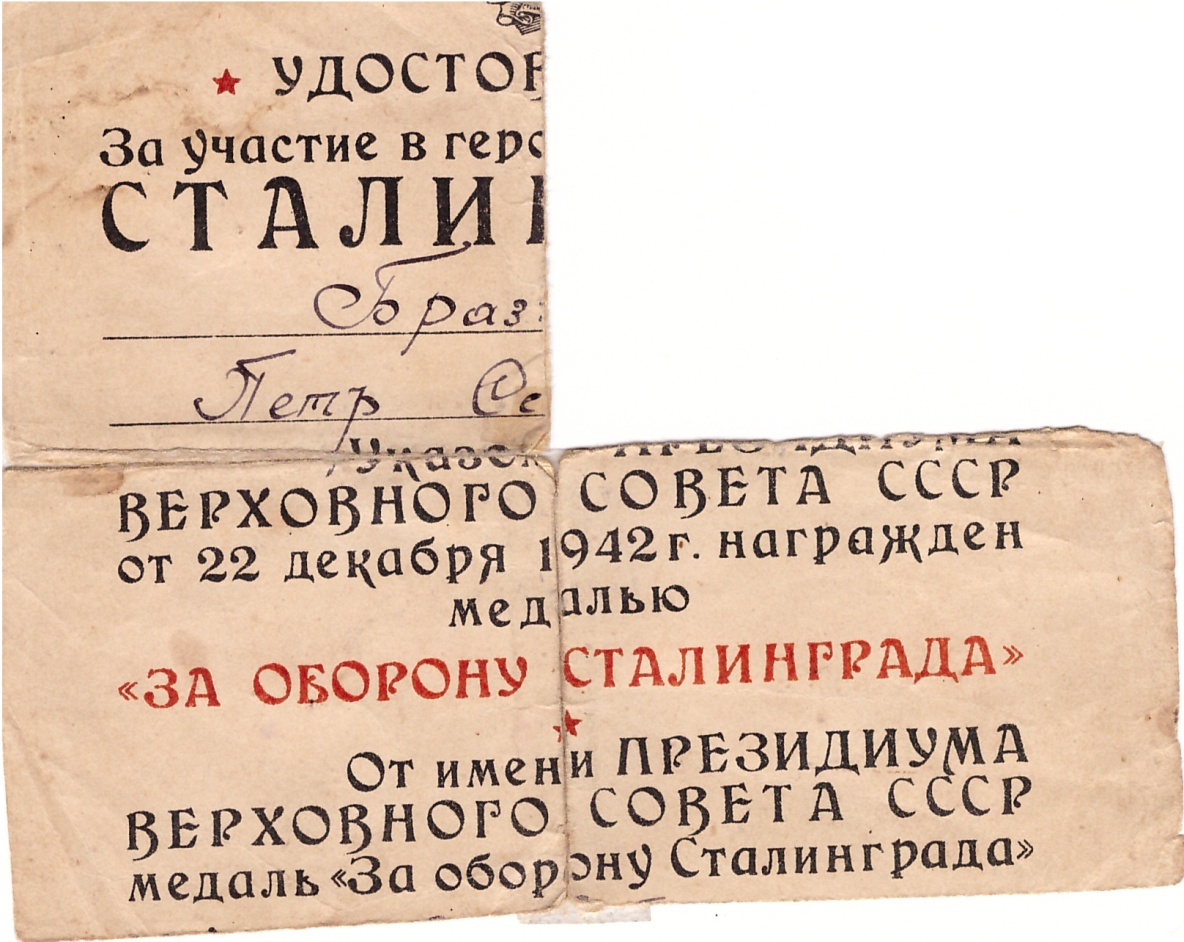 ★ УДОСТОВ
За участие в геро
СТАЛИН
Браз
Петр Се
Указом ПРЕЗИДИУМА
ВЕРХОВНОГО СОВЕТА СССР
от 22 декабря 1942 г. награжден
медалью
«ЗА ОБОРОНУ СТАЛИНГРАДА»
★
От имени ПРЕЗИДИУМА
ВЕРХОВНОГО СОВЕТА СССР
медаль «За оборону Сталинграда»